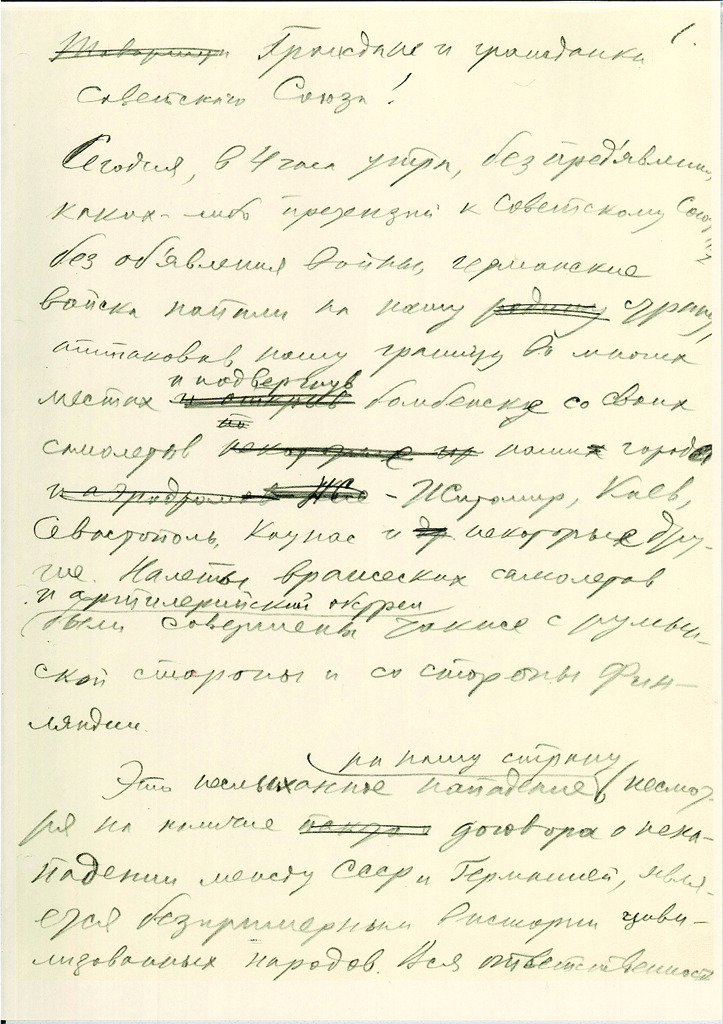 1.
Товарищи Граждане и гражданки
советского Союза!
Сегодня, в 4 часа утра, без предъявления
каких-либо претензий к Советскому Союзу
без объявления войны, германские
войска напали на нашу родину страну,
аттаковав нашу границу во многих
и подвергнув
местах и открыв бомбежке со своих
по
самолетов некоторые из наших города
и аэродромов - Житомир, Киев,
Севастополь, Каунас и др некоторые дру-
гие. Налеты вражеских самолетов
и артиллерийский обстрел
были совершены также с румын-
ской стороны и со стороны Фин-
ляндии.
на нашу страну
Это неслыханное нападение, несмот-
ря на наличие договора о нена-
падении между СССР и Германией, явля-
ется безпримерным в истории циви-
лизованных народов. Вся ответственность